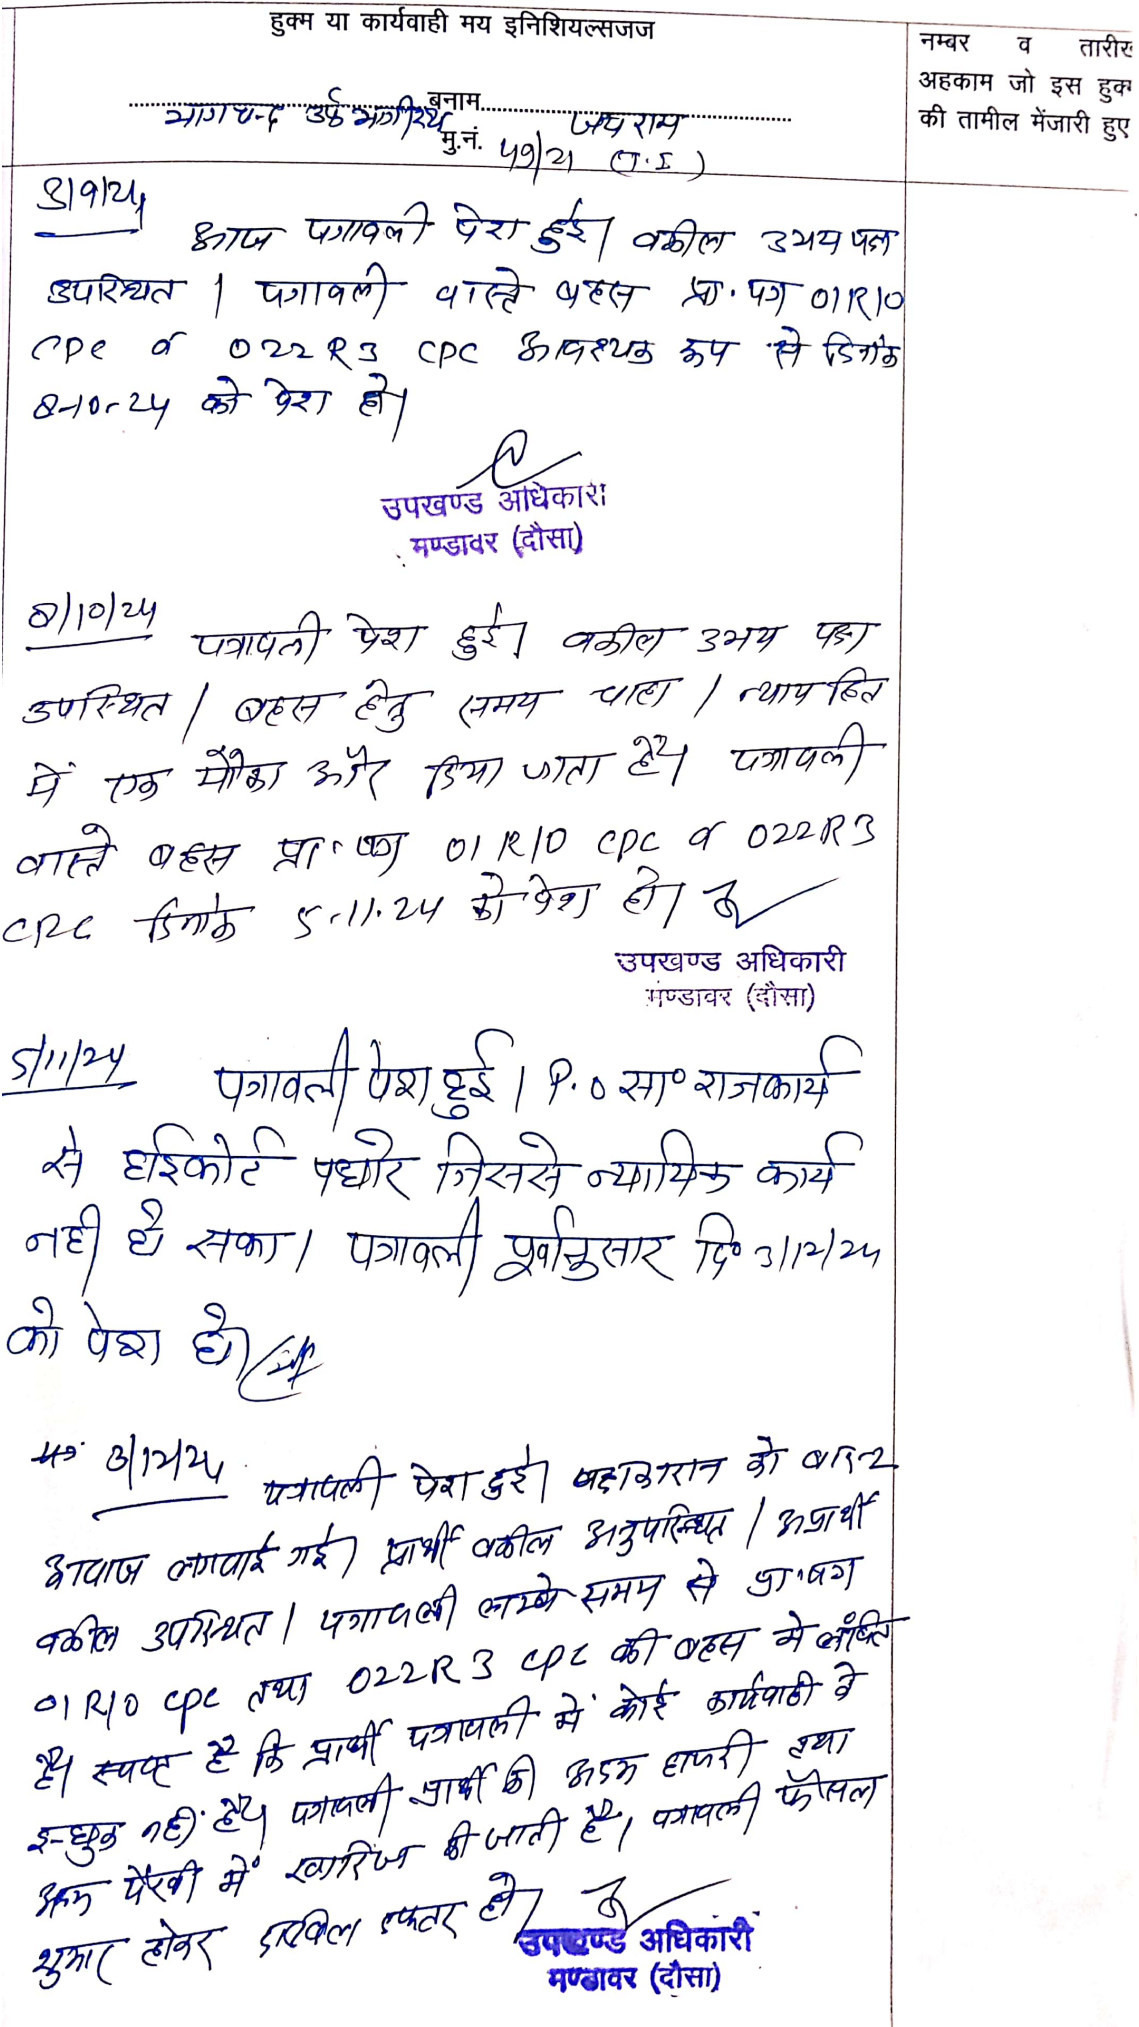 हुक्म या कार्यवाही मय इनिशियल्सजज
नम्बर व तारीख
अहकाम जो इस हुक्म
की तामील मेंजारी हुए
भागचन्द उर्फ भागीरथ बनाम जयराम
मु.नं. 59/21 (T.I)
3/9/24
आज पत्रावली पेश हुई। वकील उभय पक्ष
उपस्थित। पत्रावली वास्ते बहस प्रा. पत्र 01R10
CPC व 022 R3 CPC आवश्यक रूप से दिनांक
8-10-24 को पेश हो।
उपखण्ड अधिकारी
मण्डावर (दौसा)
8/10/24
पत्रावली पेश हुई। वकील उभय पक्ष
उपस्थित। बहस हेतु समय चाहा। न्याय हित
में एक मौका और दिया जाता है। पत्रावली
वास्ते बहस प्रा. पत्र 01 R10 CPC व 022R3
CPC दिनांक 5.11.24 को पेश हो।
उपखण्ड अधिकारी
मण्डावर (दौसा)
5/11/24
पत्रावली पेश हुई। P.O सा० राजकार्य
से हाईकोर्ट पधारे जिससे न्यायिक कार्य
नही हो सका। पत्रावली पूर्वानुसार दि० 3/12/24
को पेश हो।
3/12/24
पत्रावली पेश हुई। पक्षकारान को बार-2
आवाज लगवाई गई। प्रार्थी वकील अनुपस्थित। अप्रार्थी
वकील उपस्थित। पत्रावली लम्बे समय से प्रा.पत्र
01 R10 CPC तथा 022R3 CPC की बहस मे लंबित
है। स्पष्ट है कि प्रार्थी पत्रावली में कोई कार्यवाही के
इच्छुक नहीं है। पत्रावली प्रार्थी की अदम हाजरी तथा
अदम पैरवी में खारिज की जाती है। पत्रावली फैसल
शुमार होकर दाखिल दफ्तर हो।
उपखण्ड अधिकारी
मण्डावर (दौसा)